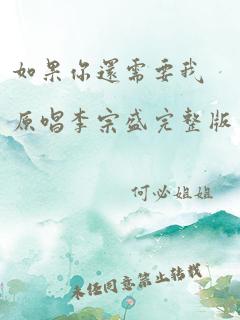 如果你還需要我
原唱李宗盛完整版
何必姐姐
未经同意禁止转载